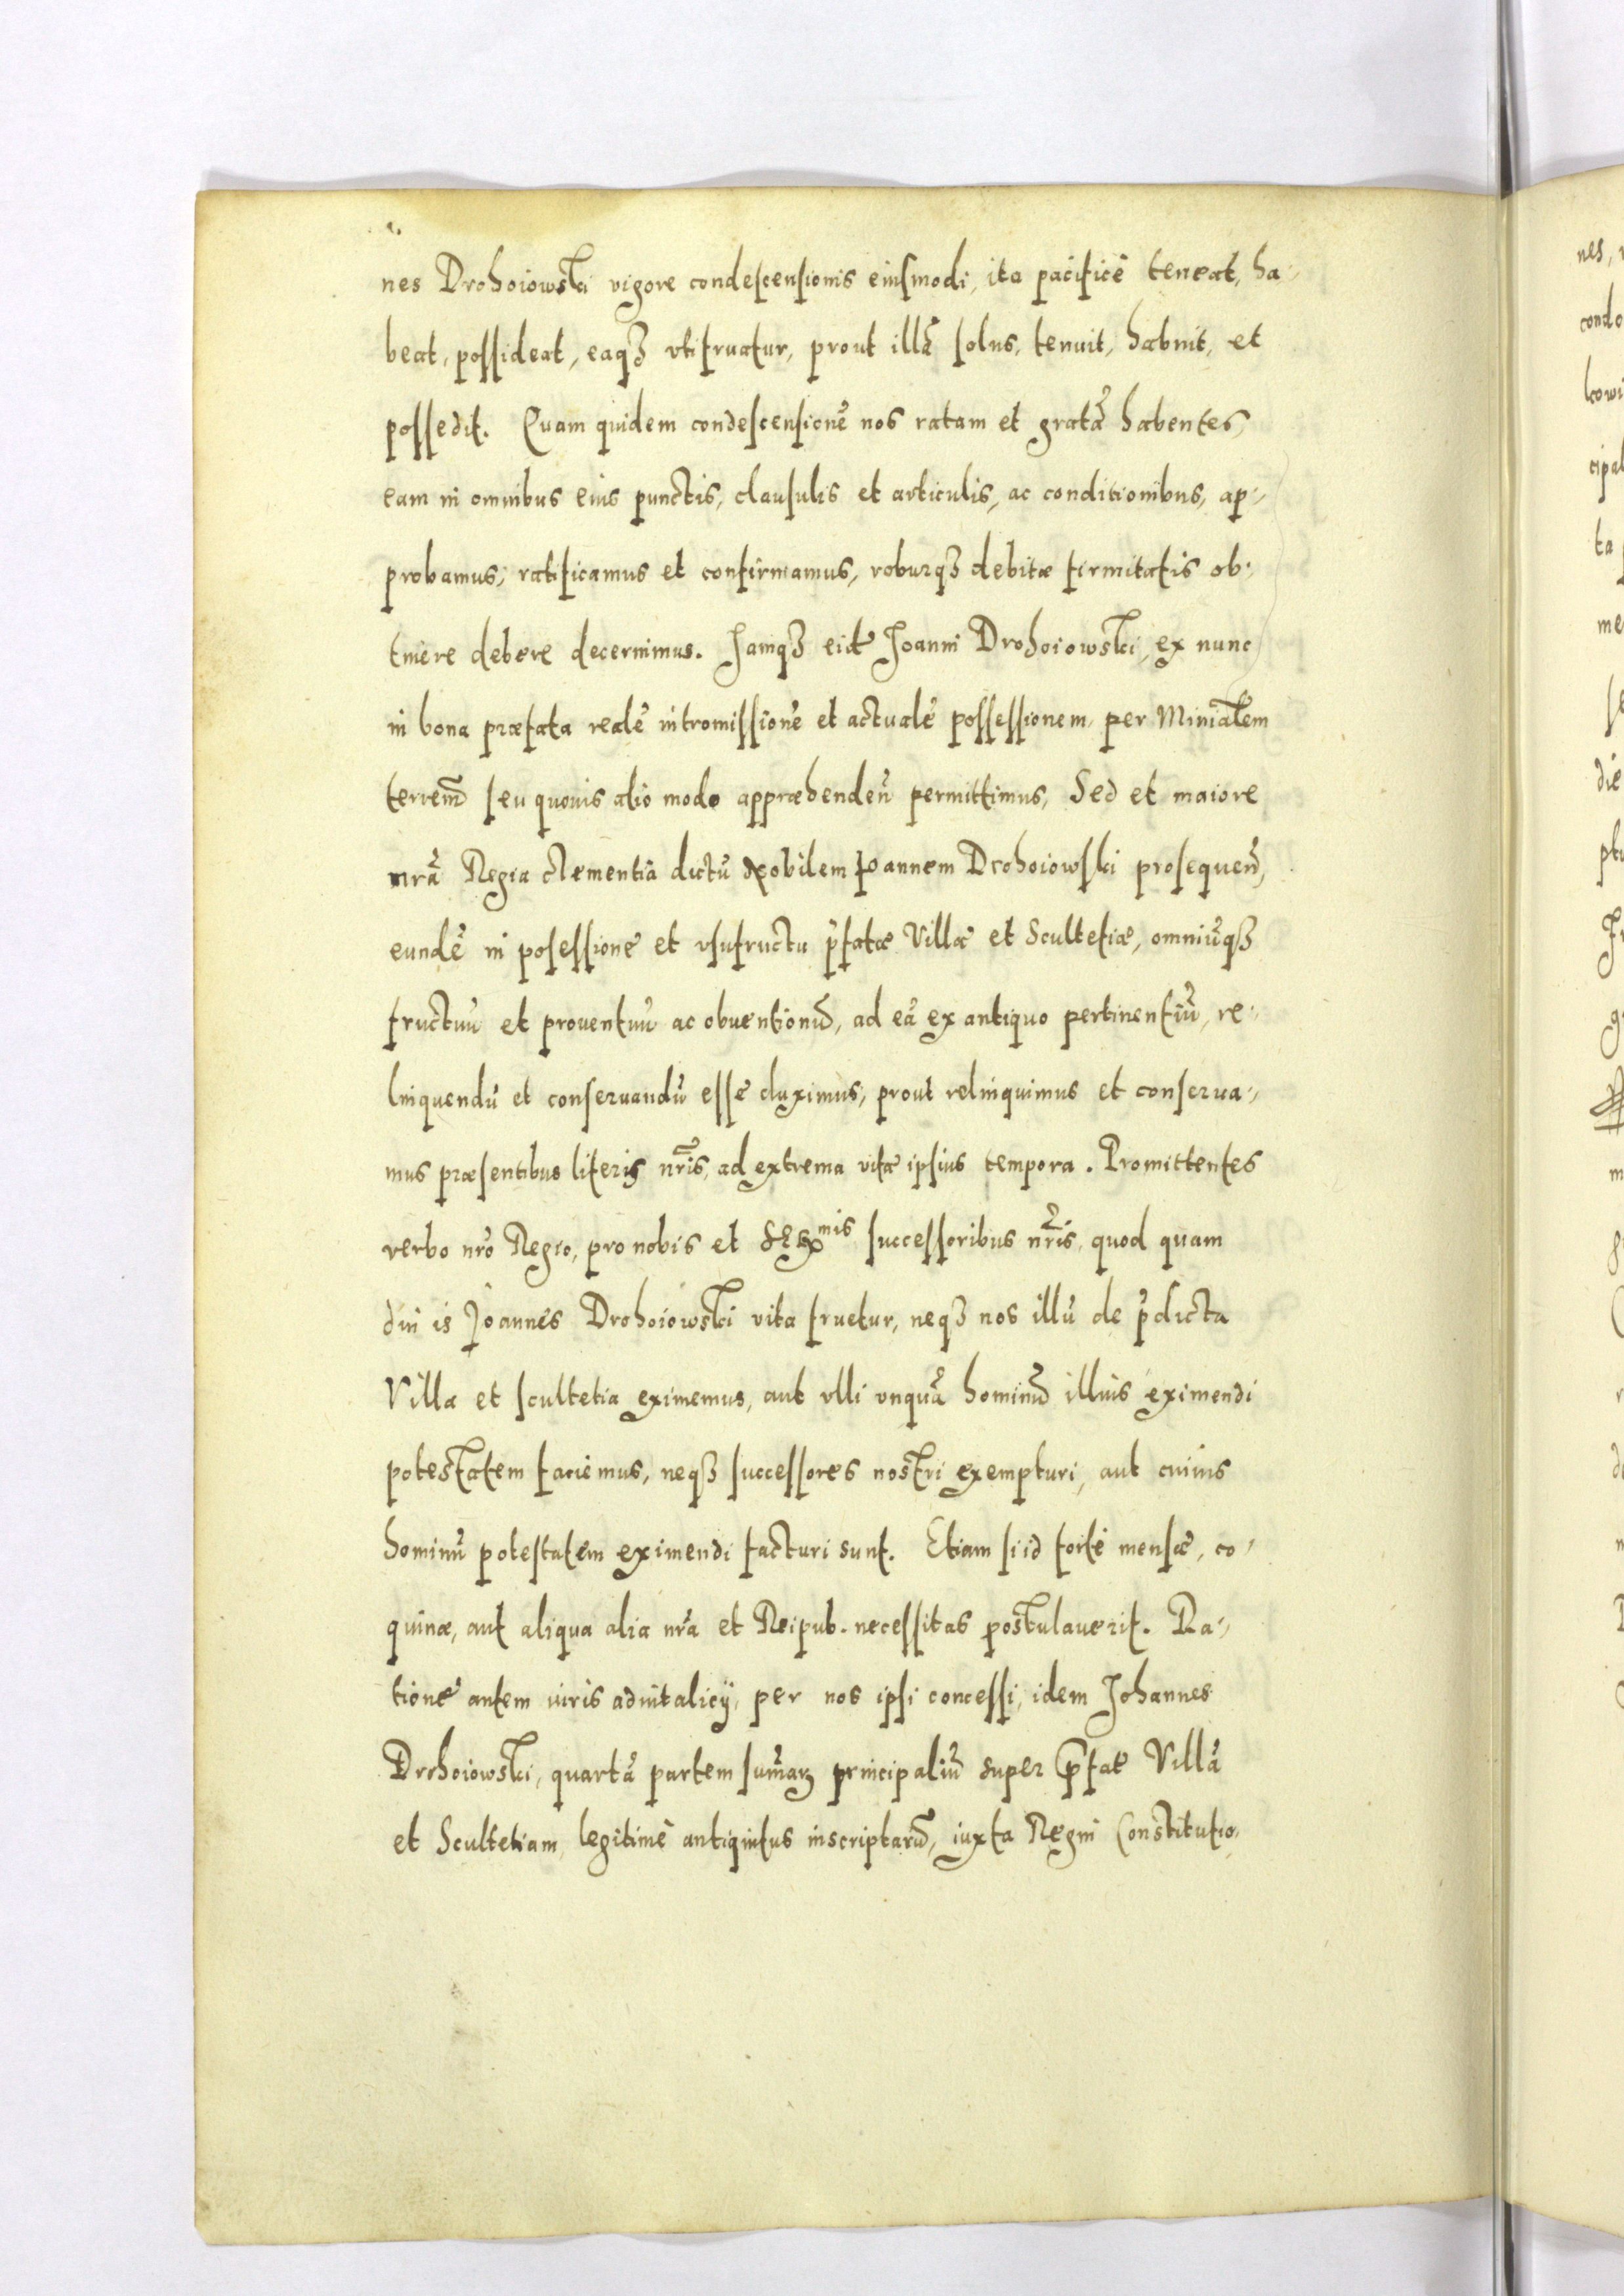 nes Drohoiowski vigore condescensionis eiusmodi, ita pacificè teneat, ha-
beat, possideat, eaqȝ vtifruatur, prout illā solus, tenuit, habuit, et
possedit. Quam quidem condescensionē nos ratam et gratā habentes,
eam in omnibus eius punctis, clausulis et articulis, ac conditionibus, ap-
probamus, ratificamus et confirmamus, roburqȝ debitæ firmitatis ob-
tinere debere decernimus. Jamqȝ eidē Joanni Drohoiowski, ex nunc
in bona præfata realē intromissionē et actualē possessionem, per Minialem
terrenū seu quouis alio modo appræhendeñ permittimus, Sed et maiore
nr̃a Regia clementia dictū Nobilem Joannem Drohoiowski prosequeñ,
eundē in posessione et vsufructu p̃fatæ Villæ et Scultetiæ, omniūqȝ
fructuū et prouentuū ac obuentionū, ad eā ex antiquo pertinentiū, re-
linquendū et conseruandū esse duximus, prout relinquimus et conserua-
mus præsentibus literis nr̃is, ad extrema vitæ ipsius tempora. Promittentes
verbo nr̃o Regio, pro nobis et Ser̃mis successoribus nr̃is, quod quam
diu is Joannes Drohoiowski vita fruetur, neqȝ nos illū de p̃dicta
Villa et scultetia eximemus, aut vlli vnquā hominū illius eximendi
potestatem faciemus, neqȝ successores nostri exempturi, aut cuiuis
hominū potestatem eximendi facturi sunt. Etiam si id fortè mensæ, co-
quinæ, aut aliqua alia nr̃a et Reipub. necessitas postulauerit. Ra-
tione autem iuris aduitalicÿ, per nos ipsi concessi, idem Johannes
Drohoiowski, quartā partem sum̃aꝝ principaliū super p̃fat̃ Villā
et Scultetiam, legitimè antiquitus inscriptarū, iuxta Regni Constitutio-
nes,